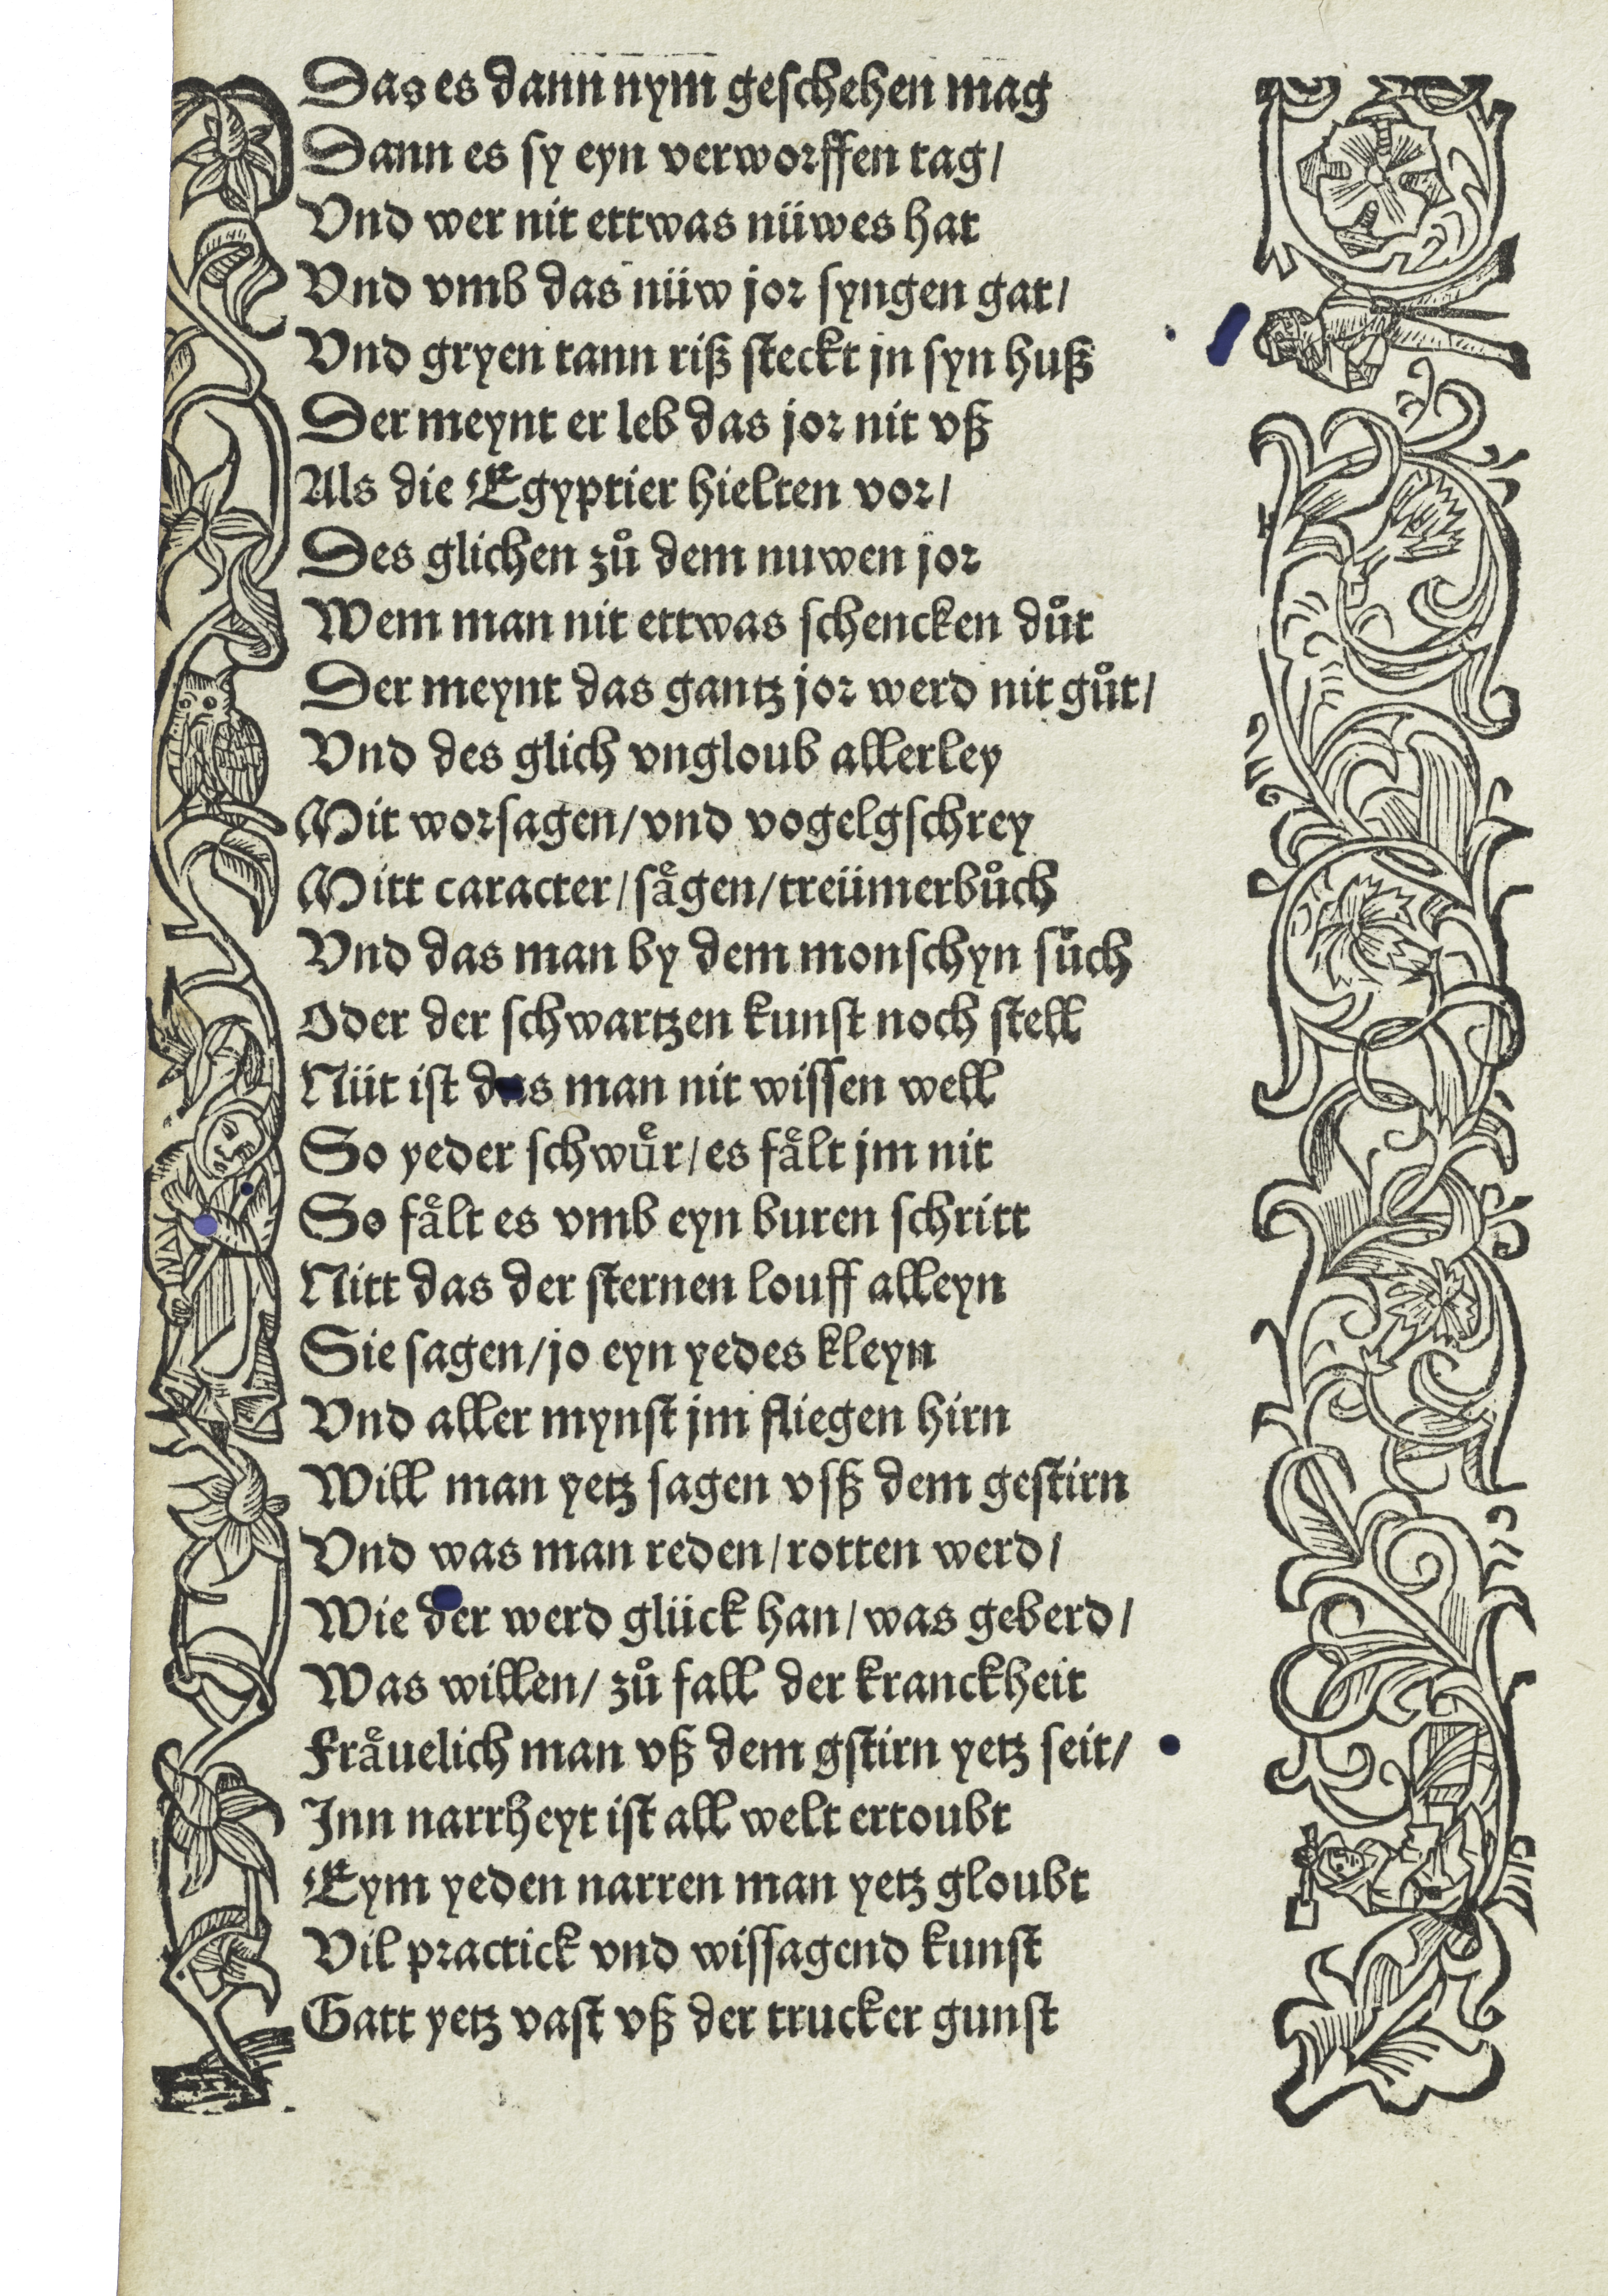 Das es dann nym geschehen mag
Dann es sy eyn verworffen tag/
Vnd wer nit ettwas nüwes hat
Vnd vmb das nüw jor syngen gat/
Vnd gryen tann riß steckt jn syn huß
Der meynt er leb das jor nit vß
Als die Egyptier hielten vor/
Des glichen zů dem nuwen jor
Wem man nit ettwas schencken důt
Der meynt das gantz jor werd nit gůt/
Vnd des glich vngloub allerley
Mit worsagen/vnd vogelgschrey
Mitt caracter/sågen/treümerbůch
Vnd das man by dem monschyn sůch
Oder der schwartzen kunst noch stell
Nüt ist das man nit wissen well
So yeder schwuͤr/es faͤlt jm nit
So faͤlt es vmb eyn buren schritt
Nitt das der sternen louff alleyn
Sie sagen/jo eyn yedes kleyn
Vnd aller mynst jm fliegen hirn
Will man yetz sagen vsß dem gestirn
Vnd was man reden/rotten werd/
Wie der werd glück han/was geberd/
Was willen/zů fall der kranckheit
Fraͤuelich man vß dem gstirn yetz seit/
Inn narrheyt ist all welt ertoubt
Eym yeden narren man yetz gloubt
Vil practick vnd wissagend kunst
Gatt yetz vast vß der trucker gunst